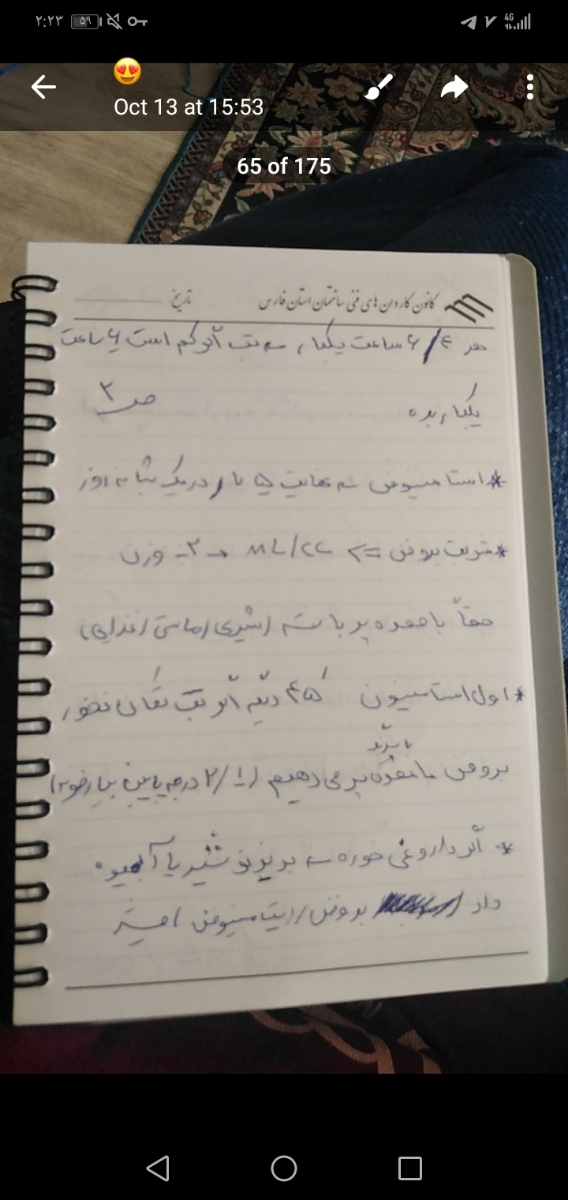 ۲:۲۳ ۵۹ 4G
Oct 13 at 15:53
65 of 175
کانون کاردان های فنی ساختمان استان فارس تاریخ
هر ۶/۴ ساعت یکبار، تب اگر کم است ۶ ساعت
یکبار بده ص ۳
* استامینوفن نهایت ۵ بار در یک شبانه روز
* شربت بروفن وزن
حتماً با معده پر باشه (شیری/ماستی/غذایی)
* اول استامینوفن ۴۵ دقیقه اگر تب تکان نخورد
بروفن با معده پر می‌دهیم (۱/۲ درجه پایین بیاد خوبه)
باید
* اگر دارو نمی خوره بریز تو شیر یا آبمیوه
داد بروفن استامینوفن